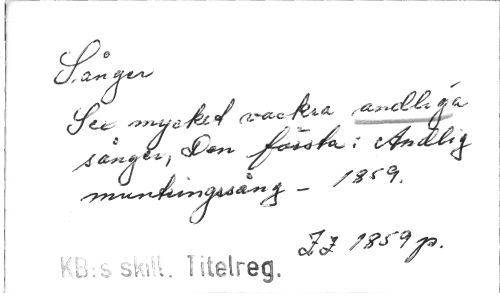 Sånger
Sex mycket vackra andliga
sånger, Den första: Andlig
muntringssång – 1859.
ZZ 1859 p.
KB:s skill. Titelreg.